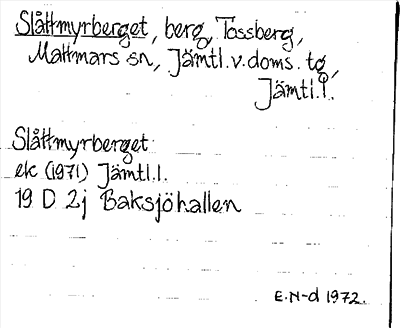 Slåttmyrberget, berg, Tossberg,
Mattmars sn, Jämtl.v.doms. tg,
Jämtl.l.
Slåttmyrberget
ek (1971) Jämtl.l.
19 D 2j Baksjöhallen
E.N-d 1972.